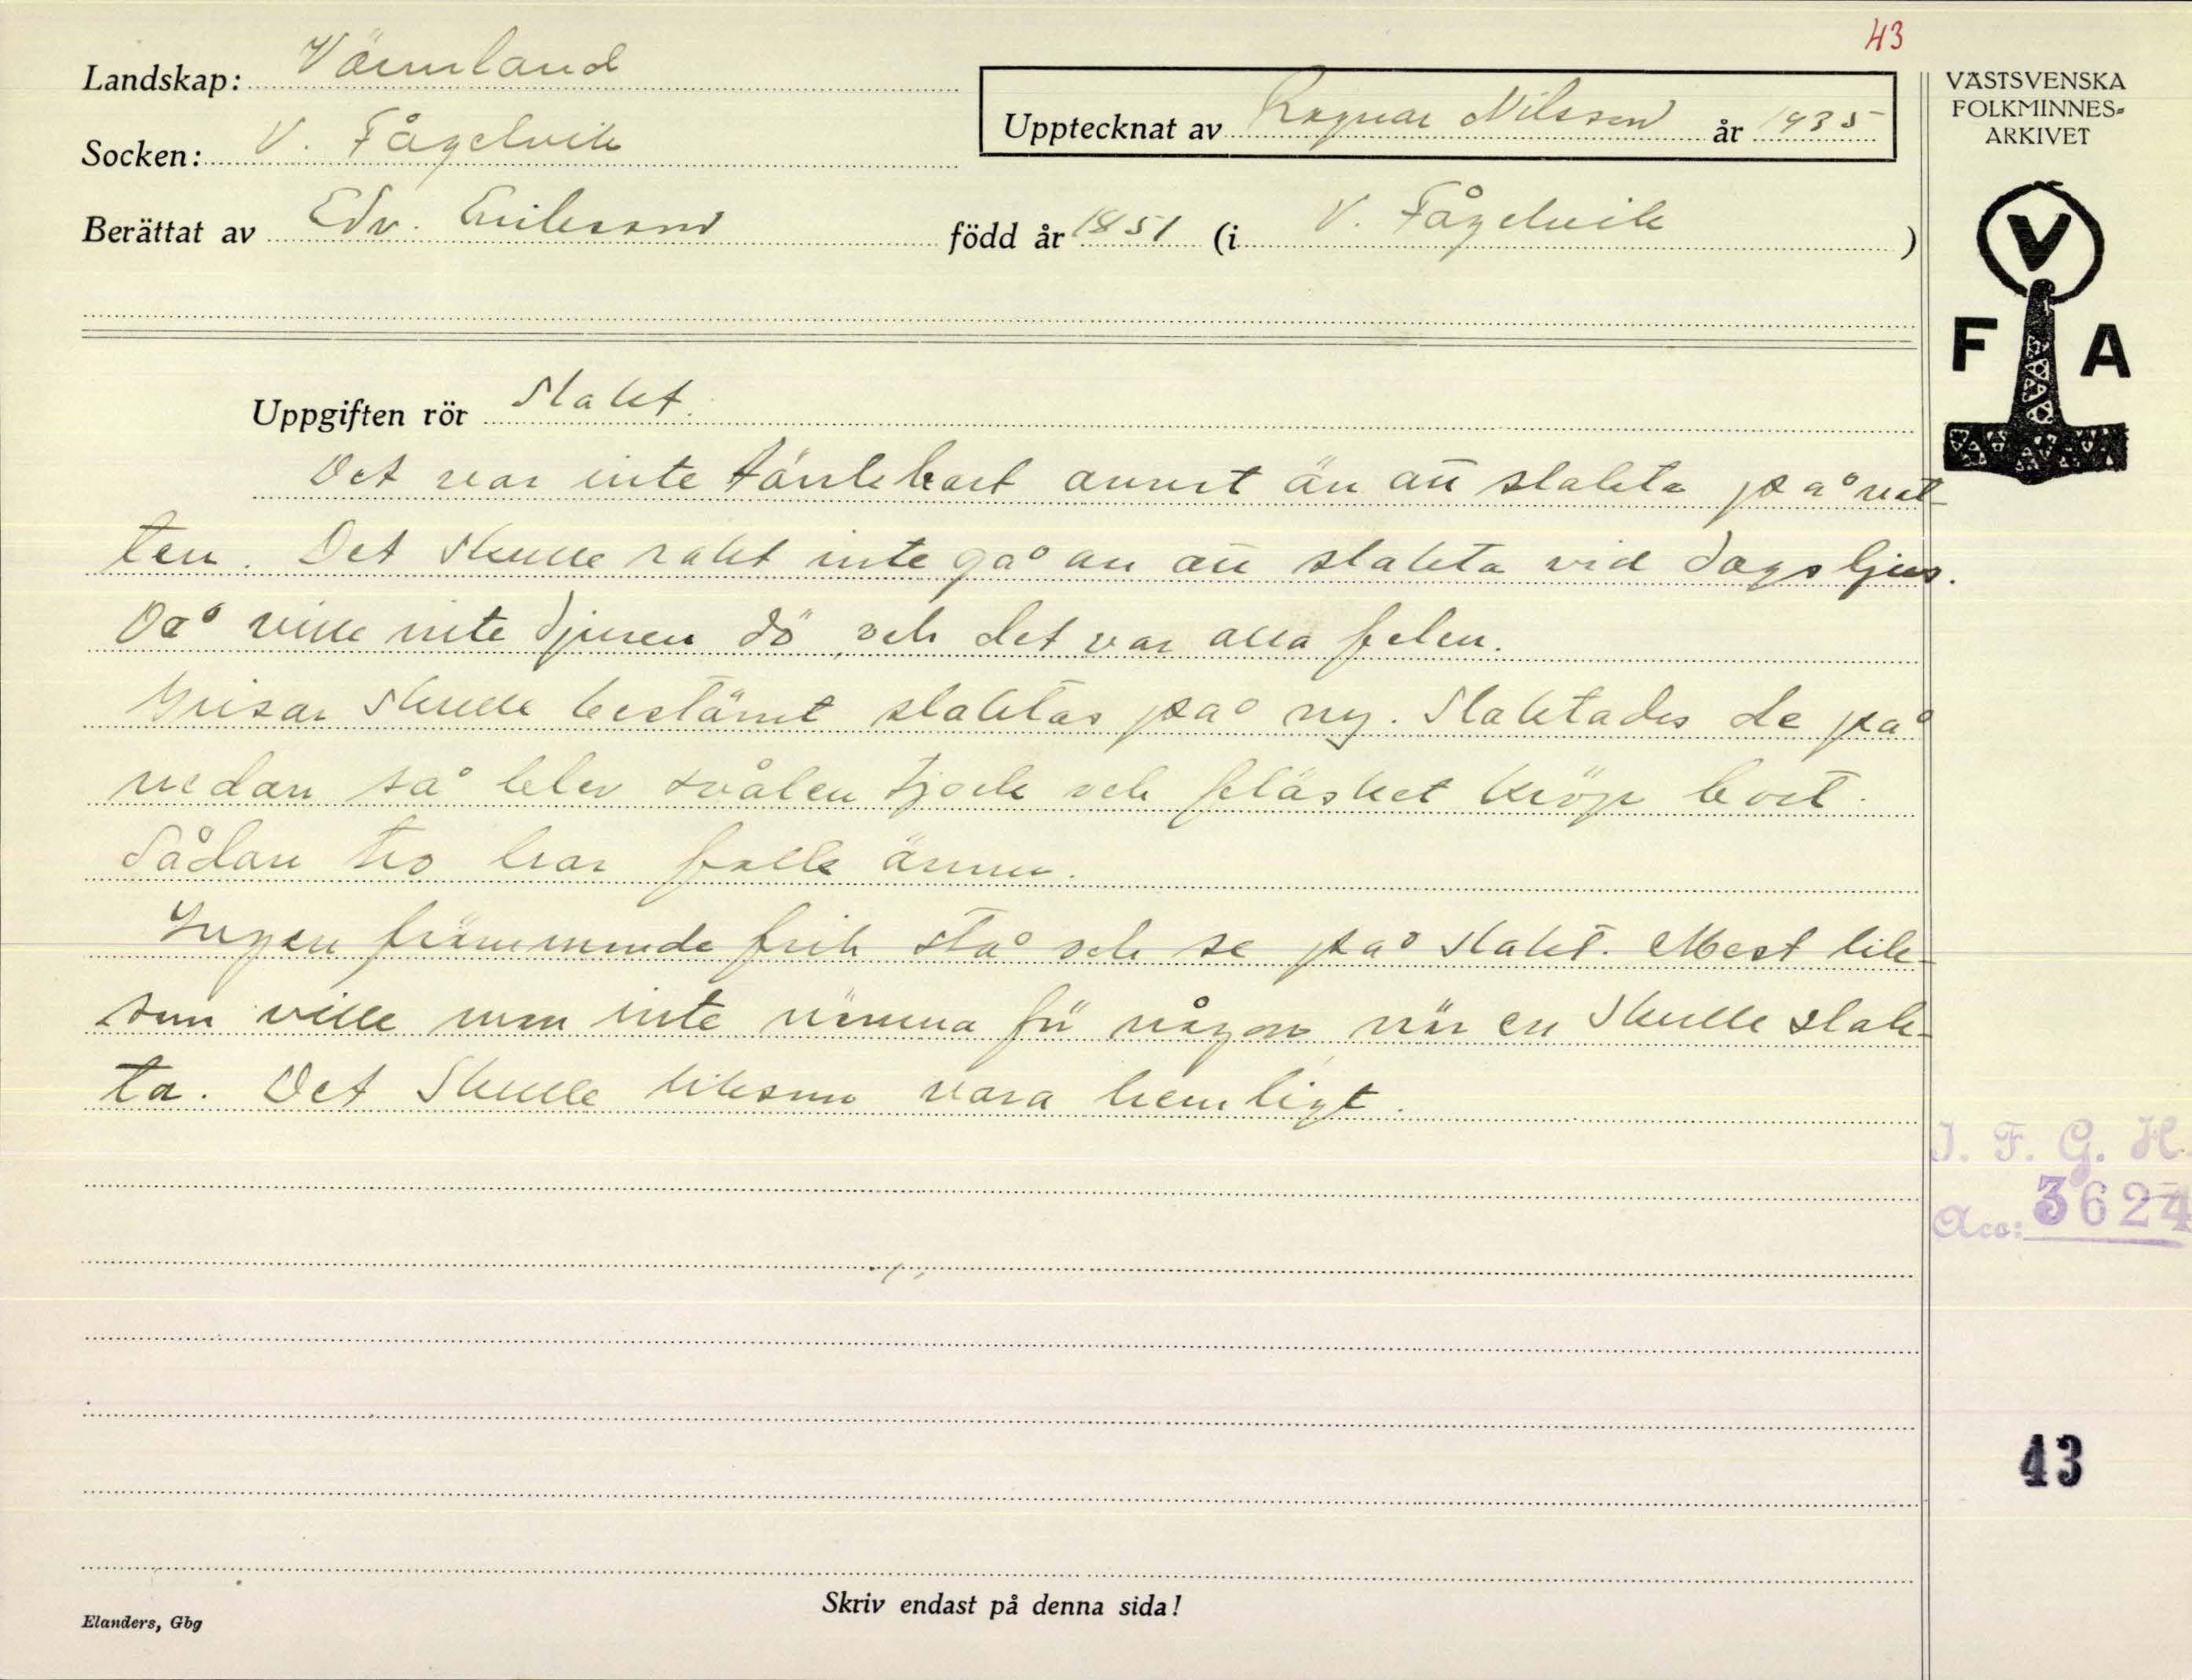 43
Landskap: Värmland
Upptecknat av Ragnar Nilsson år 1935
VÄSTSVENSKA
FOLKMINNES-
ARKIVET
Socken: V. Fågelvik
Berättat av Edv. Eriksson född år 1851 (i V. Fågelvik)
V
F A
Uppgiften rör Slakt.
Det var inte tänkbart annat än att slakta på nat-
ten. Det skulle rakt inte gå an att slakta vid dagsljus.
Då ville inte djuren dö, och det var alla felen.
Grisar skulle bestämt slaktas på ny. Slaktades de på
nedan så blev svålen tjock och fläsket kröp bort.
Sådan tro har folk ännu.
Ingen främmende fick stå och se på slakt. Mest lik-
som ville man inte nämna för någon när en skulle slak-
ta. Det skulle liksom vara hemligt.
I. F. G. H.
Acc: 3624
43
Skriv endast på denna sida!
Elanders, Gbg